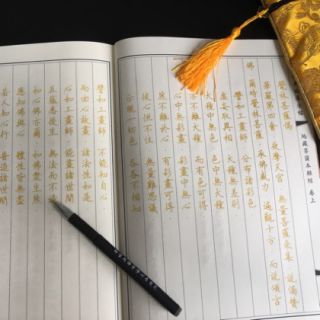 地藏菩薩本願經 卷上
佛
爾時覺林菩薩 承佛威力 遍觀十方 而說頌言
譬如工畫師 分布諸彩色
虛妄取異相 大種無差別
大種中無色 色中無大種
亦不離大種 而有色可得
心中無彩畫 彩畫中無心
然不離於心 有彩畫可得
彼心恒不住 無量難思議
示現一切色 各各不相知
譬如工畫師 不能知自心
而由心故畫 諸法性如是
心如工畫師 能畫諸世間
五蘊悉從生 無法而不造
如心佛亦爾 如佛眾生然
應知佛與心 體性皆無盡
若人知心行 普造諸世間